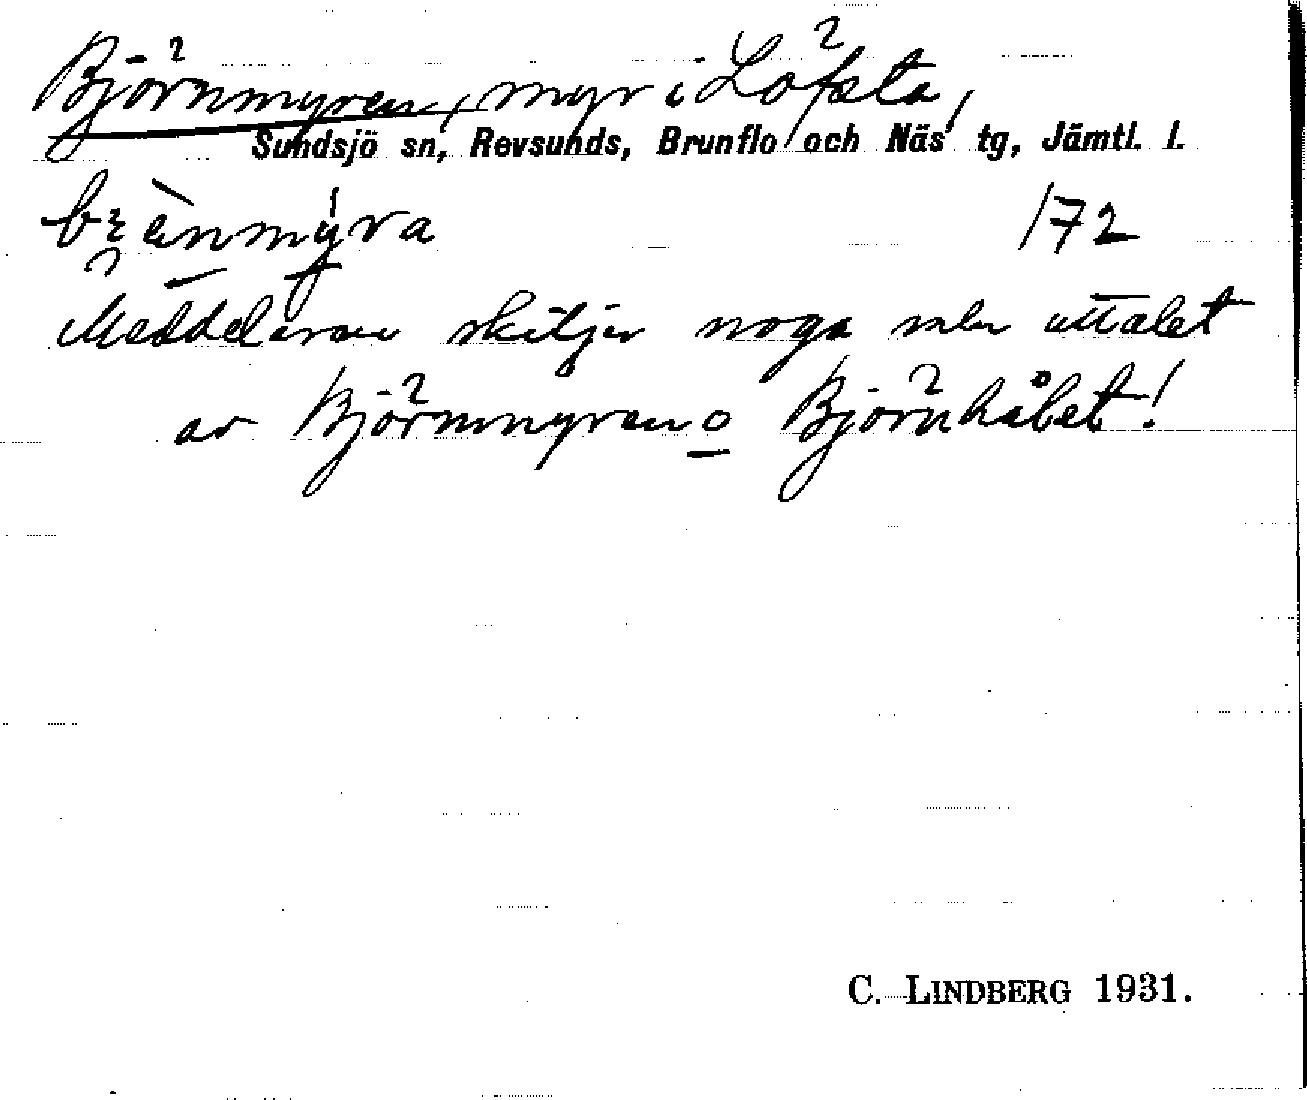 Björnmyren, myr i Lofsta,
Sundsjö sn, Revsunds, Brunflo och Näs tg, Jämtl. l.
172
Meddelaren skiljer noga mln uttalet
av Björnmyren o Björnhålet!
C. LINDBERG 1931.